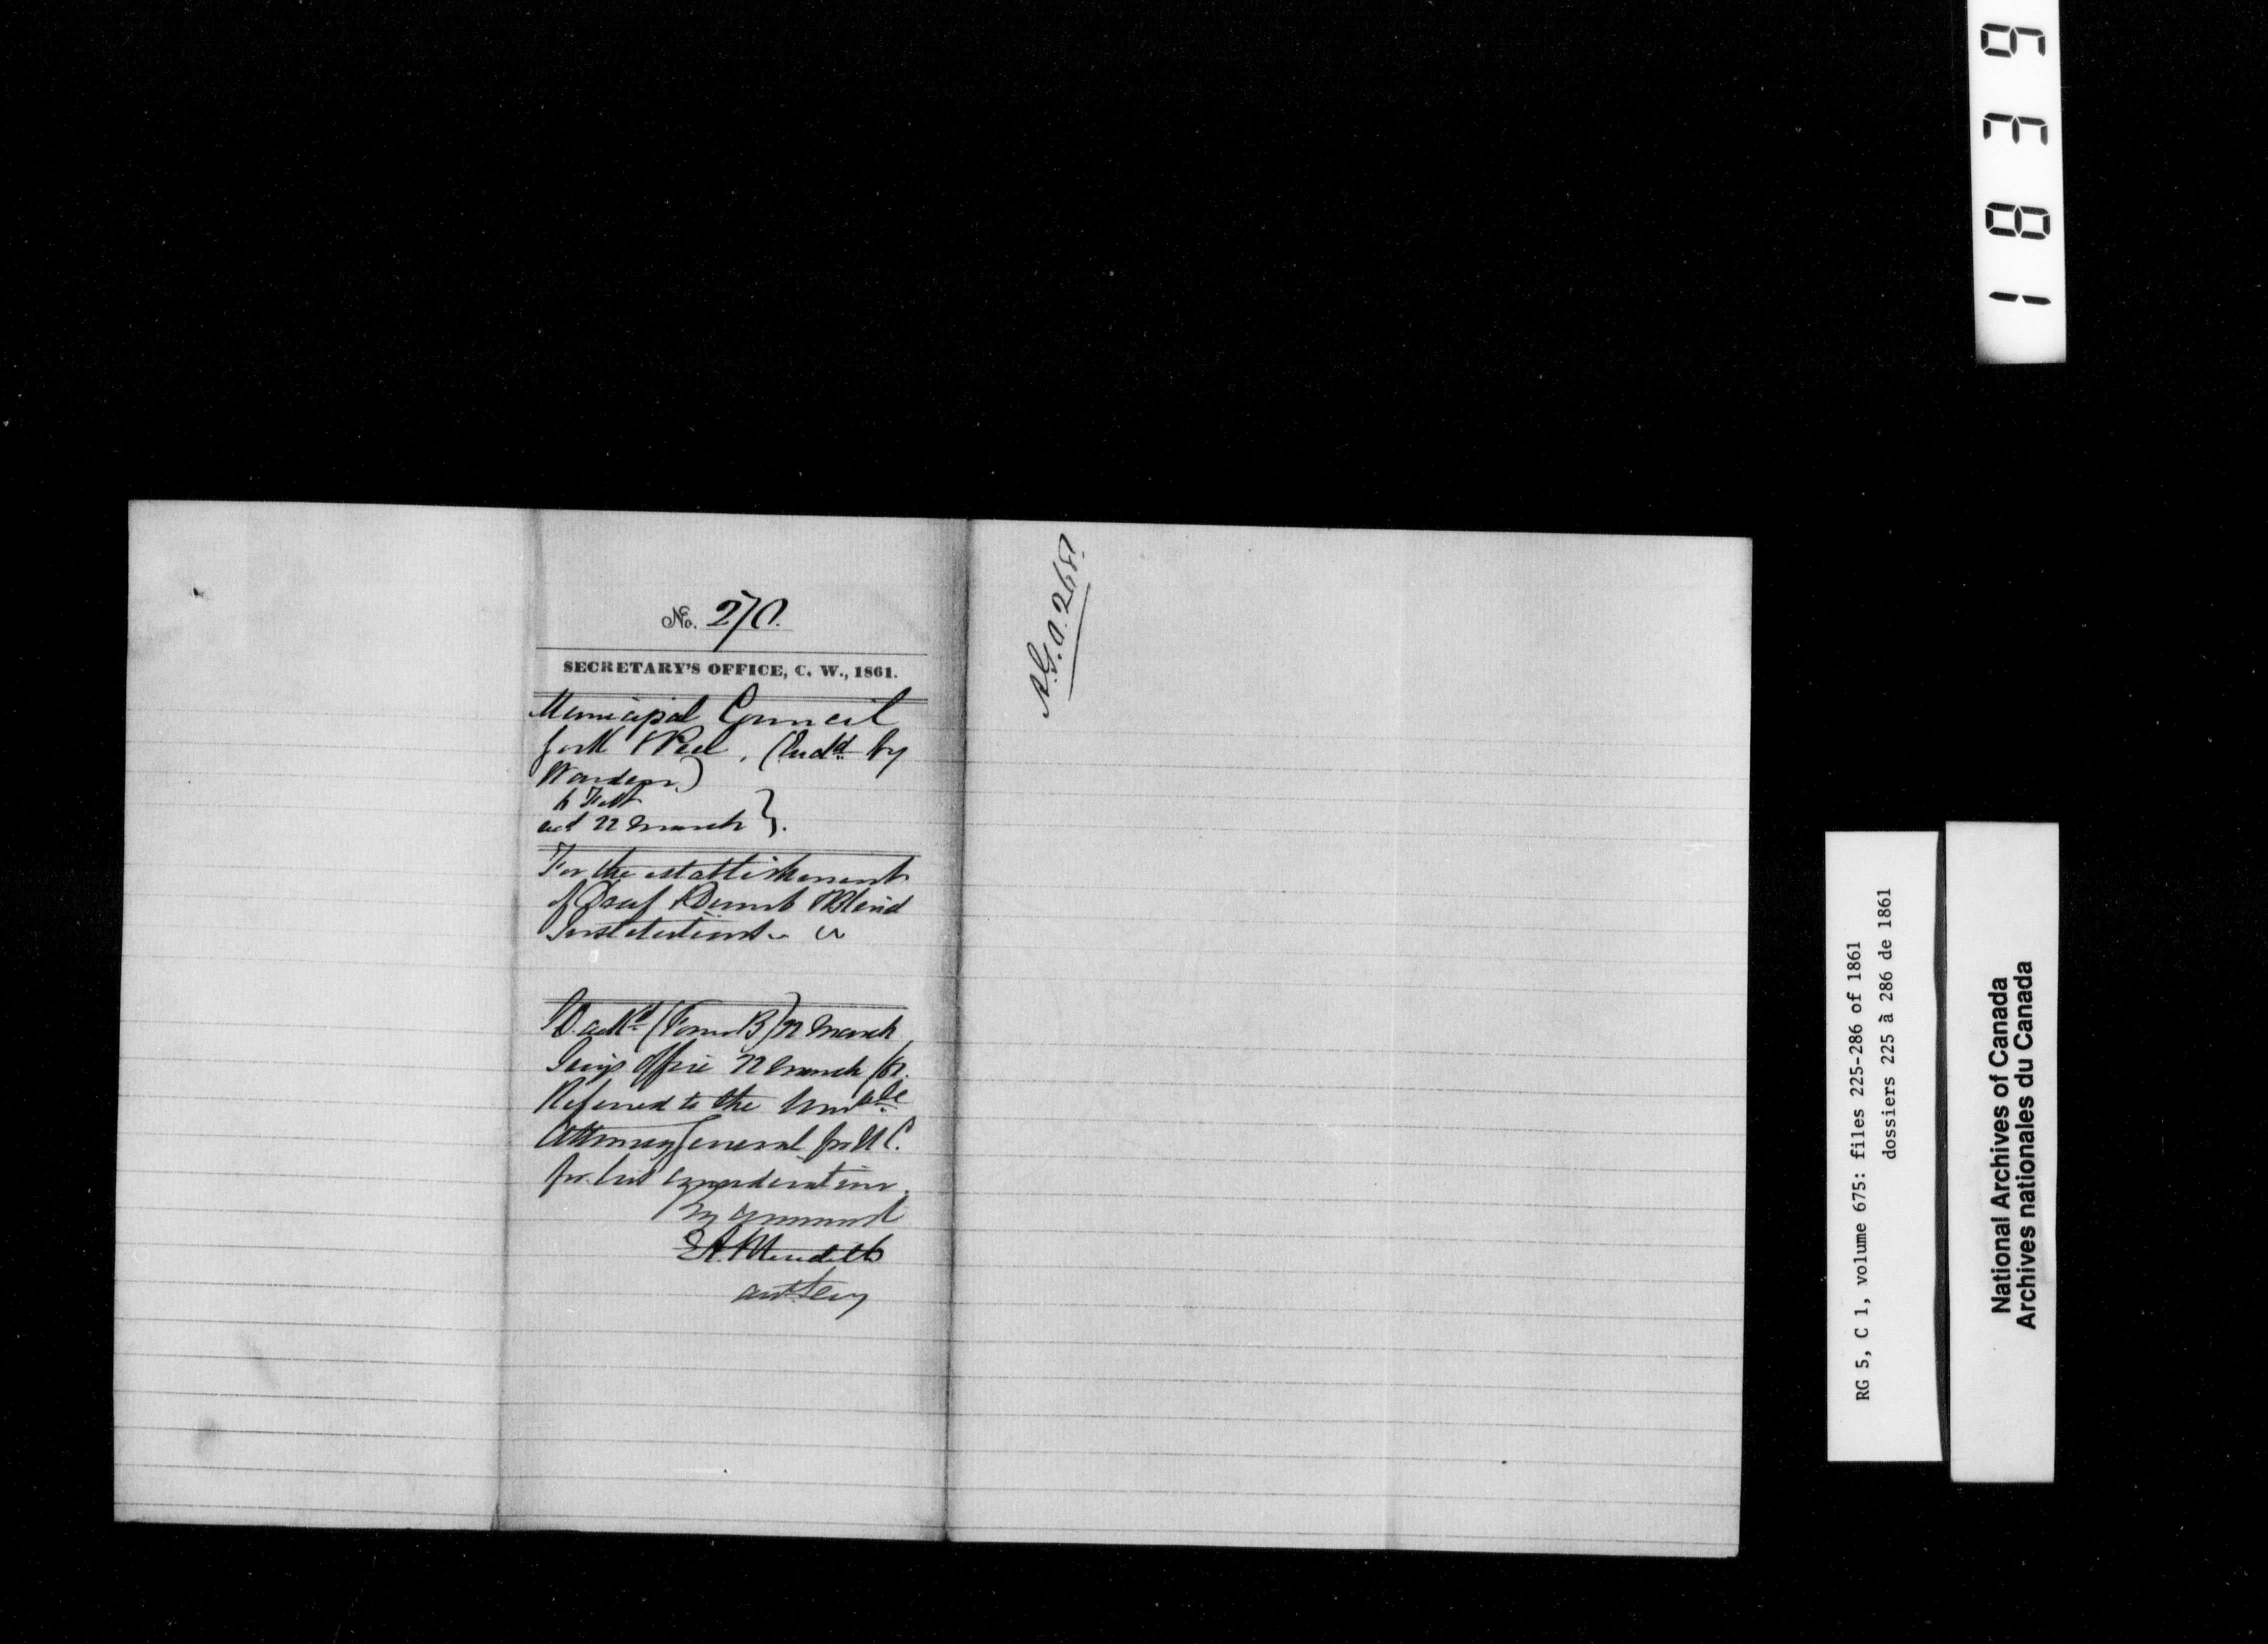 No. 270.
SECRETARY'S OFFICE, C. W., 1861.
Municipal Council
York & Peel, (Encd by
Warden)
22 March }.
For the establishment
of Deaf & Dumb & Blind
Institutions
Ackd (Form B) 22 March
Secys Office 22 March /61.
Referred to the Honble
Attorney General for U C.
for his consideration.
By Command
E A. Meredith
Asst Secy
A.G.O. 268
1839
RG 5, C 1, volume 675: files 225-286 of 1861
dossiers 225 à 286 de 1861
National Archives of Canada
Archives nationales du Canada